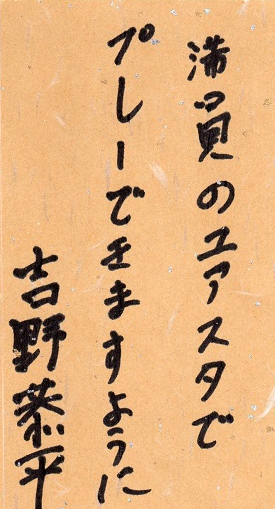 満員のユアスタで
プレーできますように
吉野恭平